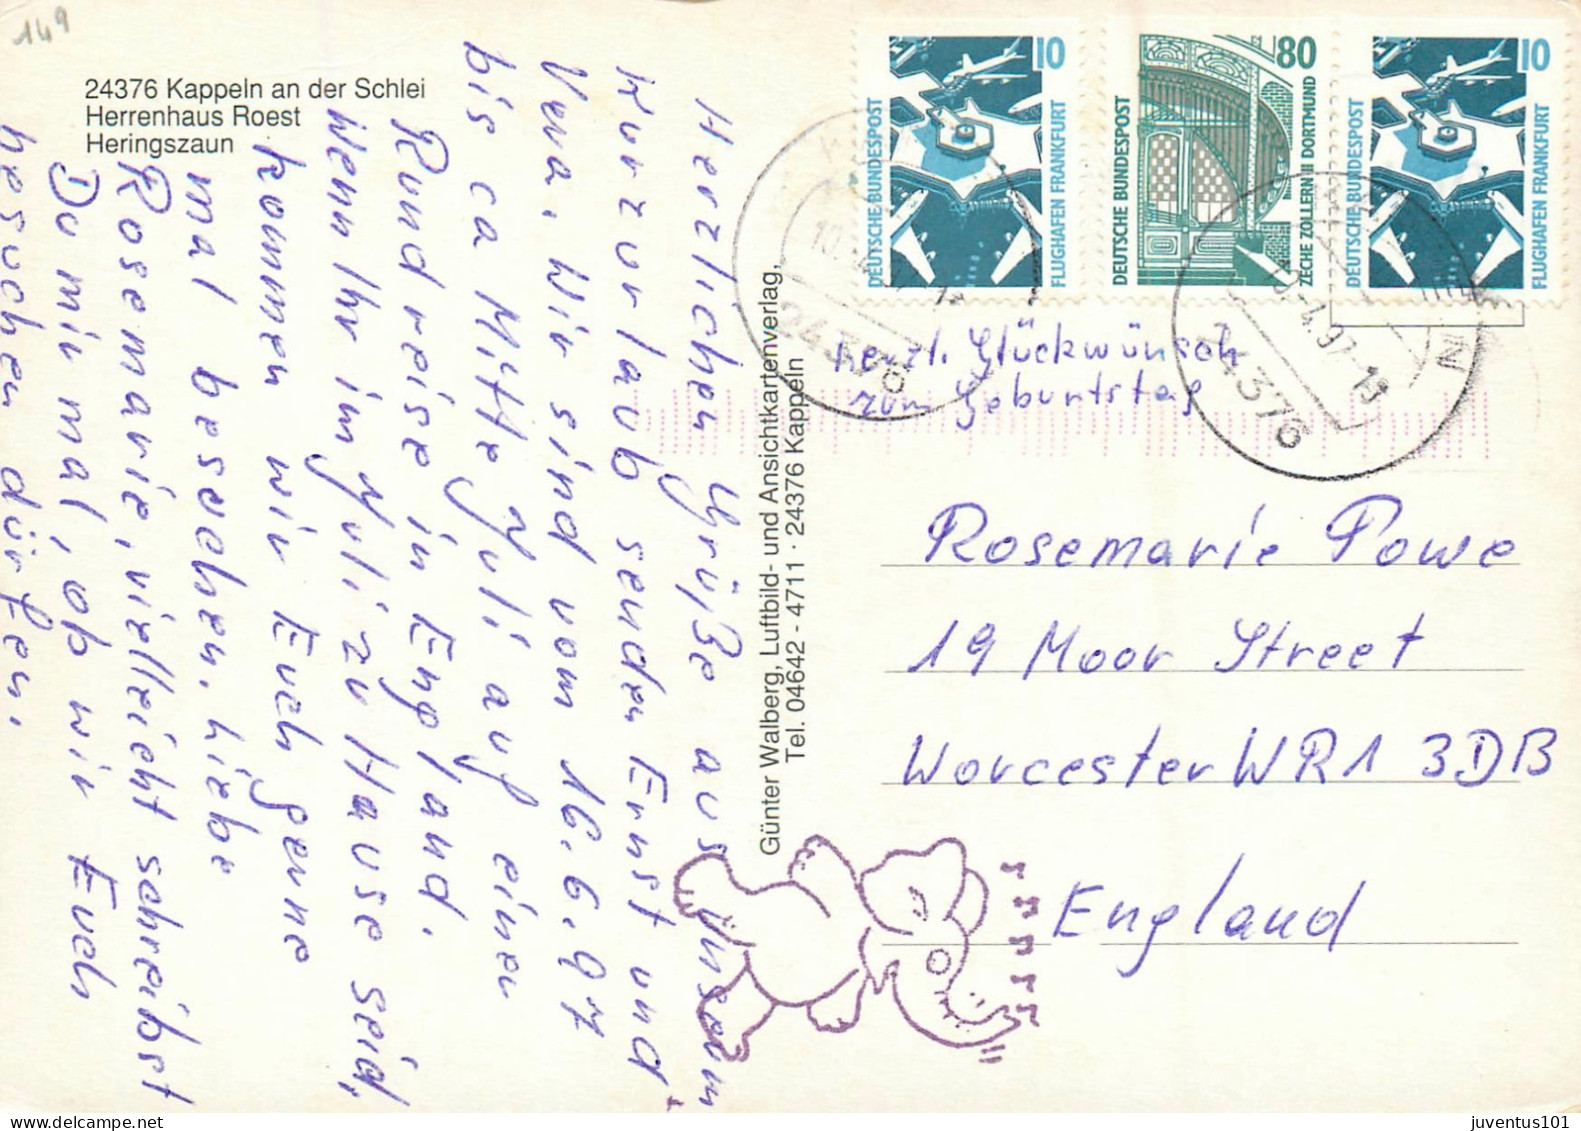 149
24376 Kappeln an der Schlei
Herrenhaus Roest
Heringszaun
Herzlichen Grüße aus unserem
Kurzurlaub senden Ernst und
Vera. Wir sind vom 16.6.97
bis ca Mitte Juli auf einer
Rundreise in England.
Wenn Ihr im Juli zu Hause seid,
kommen wir Euch gerne
mal besuchen. Liebe
Rosemarie, vielleicht schreibst
Du mir mal, ob wir Euch
besuchen dürfen.
Günter Walberg, Luftbild- und Ansichtkartenverlag,
Tel. 04642 - 4711 · 24376 Kappeln
DEUTSCHE BUNDESPOST
10
FLUGHAFEN FRANKFURT
DEUTSCHE BUNDESPOST
80
ZECHE ZOLLERN II DORTMUND
DEUTSCHE BUNDESPOST
10
FLUGHAFEN FRANKFURT
24376
-4.97-13
24376
herzl. Glückwünsch
zum Geburtstag
Rosemarie Powe
19 Moor Street
Worcester WR1 3DB
England
juventus101